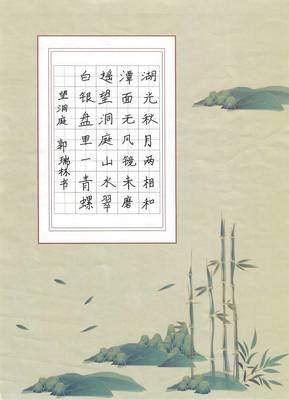 湖光秋月两相和
潭面无风镜未磨
遥望洞庭山水翠
白银盘里一青螺
望洞庭 郭瑞林书